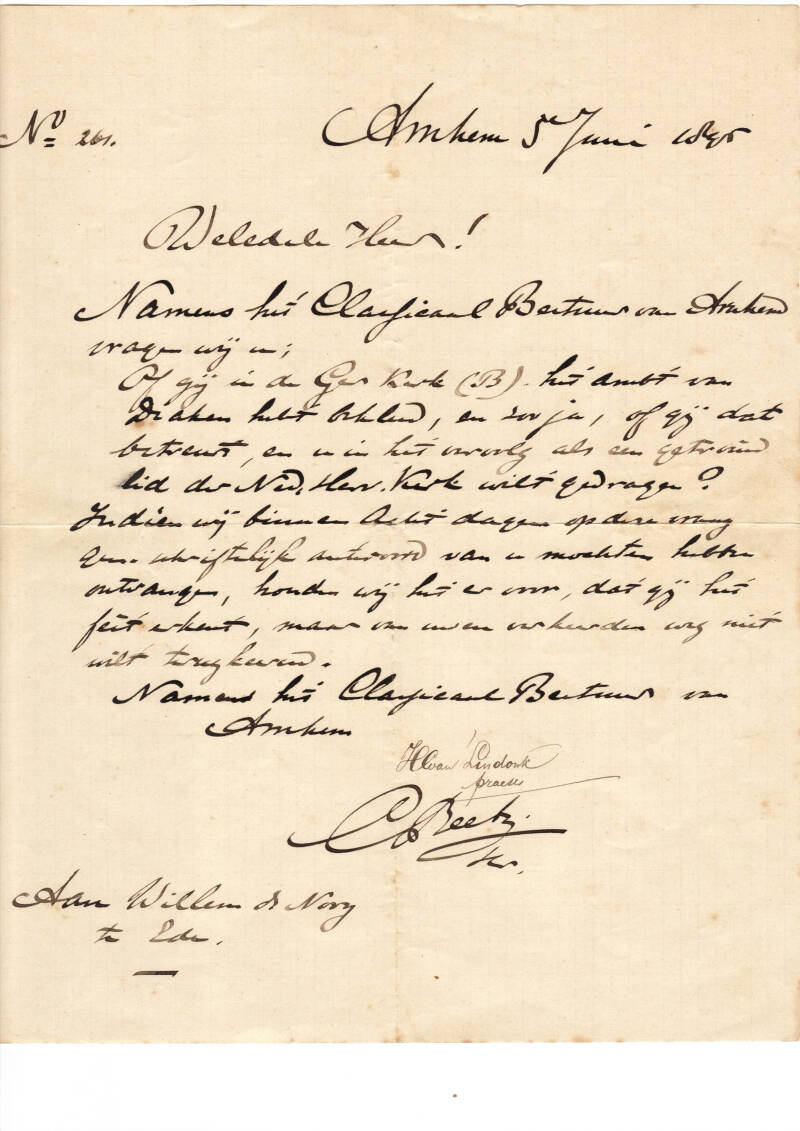 No 261.
Arnhem 5e Juni 1895
Weledele Heer!
Namens het Classicaal Bestuur van Arnhem
vragen wij u;
Of gij in de Ger Kerk (B). het ambt van
Diaken hebt bekleed, en zoo ja, of gij dat
betreurt, en u in het vervolg als een getrouw
lid der Ned. Herv. Kerk wilt gedragen?
Indien wij binnen Acht dagen op deze vraag
geen schriftelijk antwoord van u mochten hebben
ontvangen, houden wij het er voor, dat gij het
feit erkent, maar van uwen verkeerden weg niet
wilt terugkeeren.
Namens het Classicaal Bestuur van
Arnhem
praeses
C Beets.
Aan Willem de Nooy
te Ede.